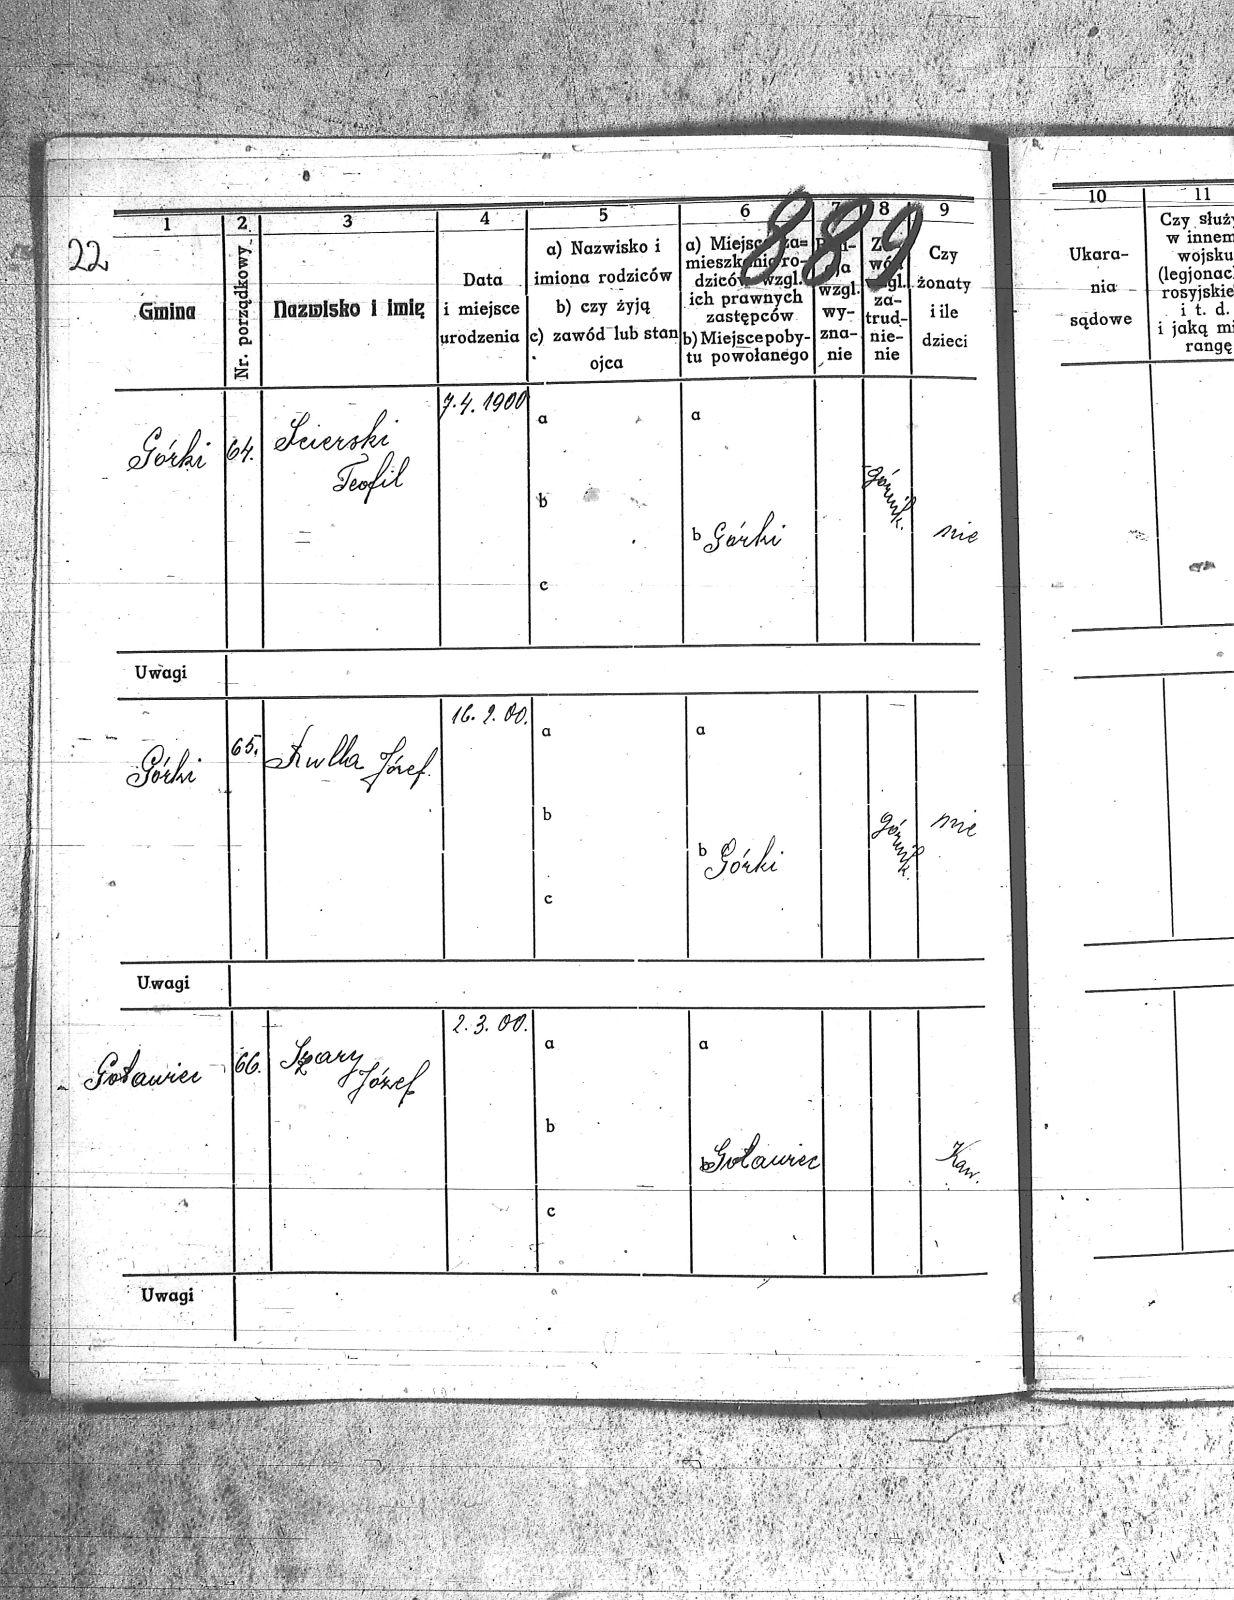 889
22
1 2 3 4 5 6 7 8 9 10 11
Gmina
Nr. porządkowy
Nazwisko i imię
Data
i miejsce
urodzenia
a) Nazwisko i
imiona rodziców
b) czy żyją
c) zawód lub stan
ojca
a) Miejsce za=
mieszkania ro-
dziców wzgl.
ich prawnych
zastępców
b) Miejsce poby-
tu powołanego
wzgl.
wy-
zna-
nie
za-
trud-
nie-
nie
Czy
żonaty
i ile
dzieci
Ukara-
nia
sądowe
Czy służy
w innem
wojsku
(legjonach
rosyjskie
i t. d.
i jaką mi
rangę
Górki 64. Scierski
Teofil
7.4.1900
a
b
c
a
b Górki
górnik.
nie
Uwagi
Górki 65. Kulka Józef.
16.2.00.
a
b
c
a
b Górki
górnik.
nie
Uwagi
Goławiec 66. Szary
Józef
2.3.00.
a
b
c
a
b Goławiec
Kaw.
Uwagi